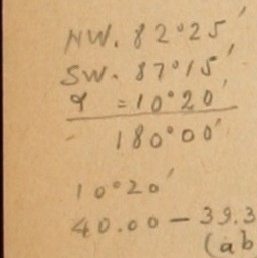 NW. 82°25'
SW. 87°15'
9 =10°20'
180°00'
10°20'
40.00 – 39.3
(ab